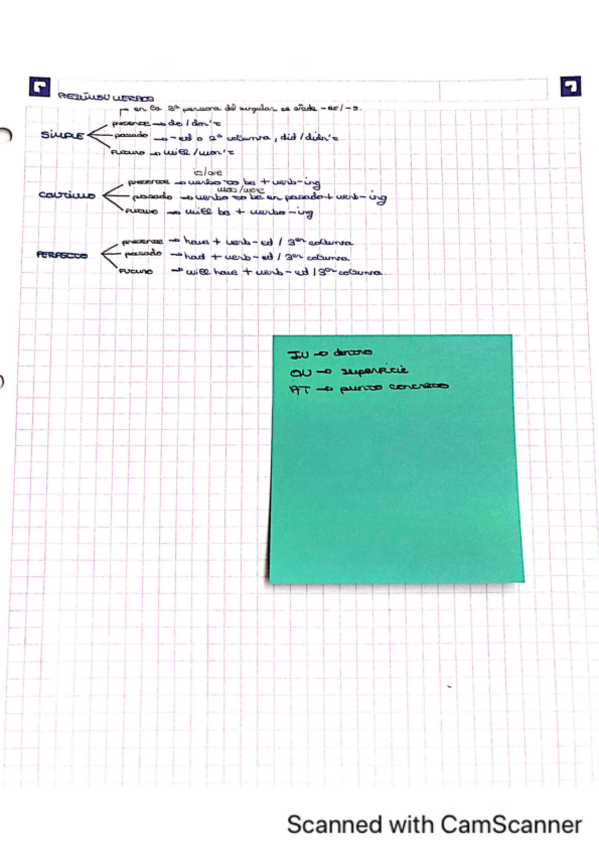 RESUMEN VERBOS
en la 3ª persona del singular se añade -es/-s.
SIMPLE
presente → do/don't
pasado → -ed o 2ª columna, did/didn't
futuro → will/won't
CONTINUO
is/are
presente → verbo to be + verb-ing
was/were
pasado → verbo to be en pasado + verb-ing
futuro → will be + verbo-ing
PERFECTO
presente → have + verb-ed / 3er columna
pasado → had + verb-ed / 3er columna
futuro → will have + verb-ed / 3er columna.
IN → dentro
ON → superficie
AT → punto concreto
Scanned with CamScanner